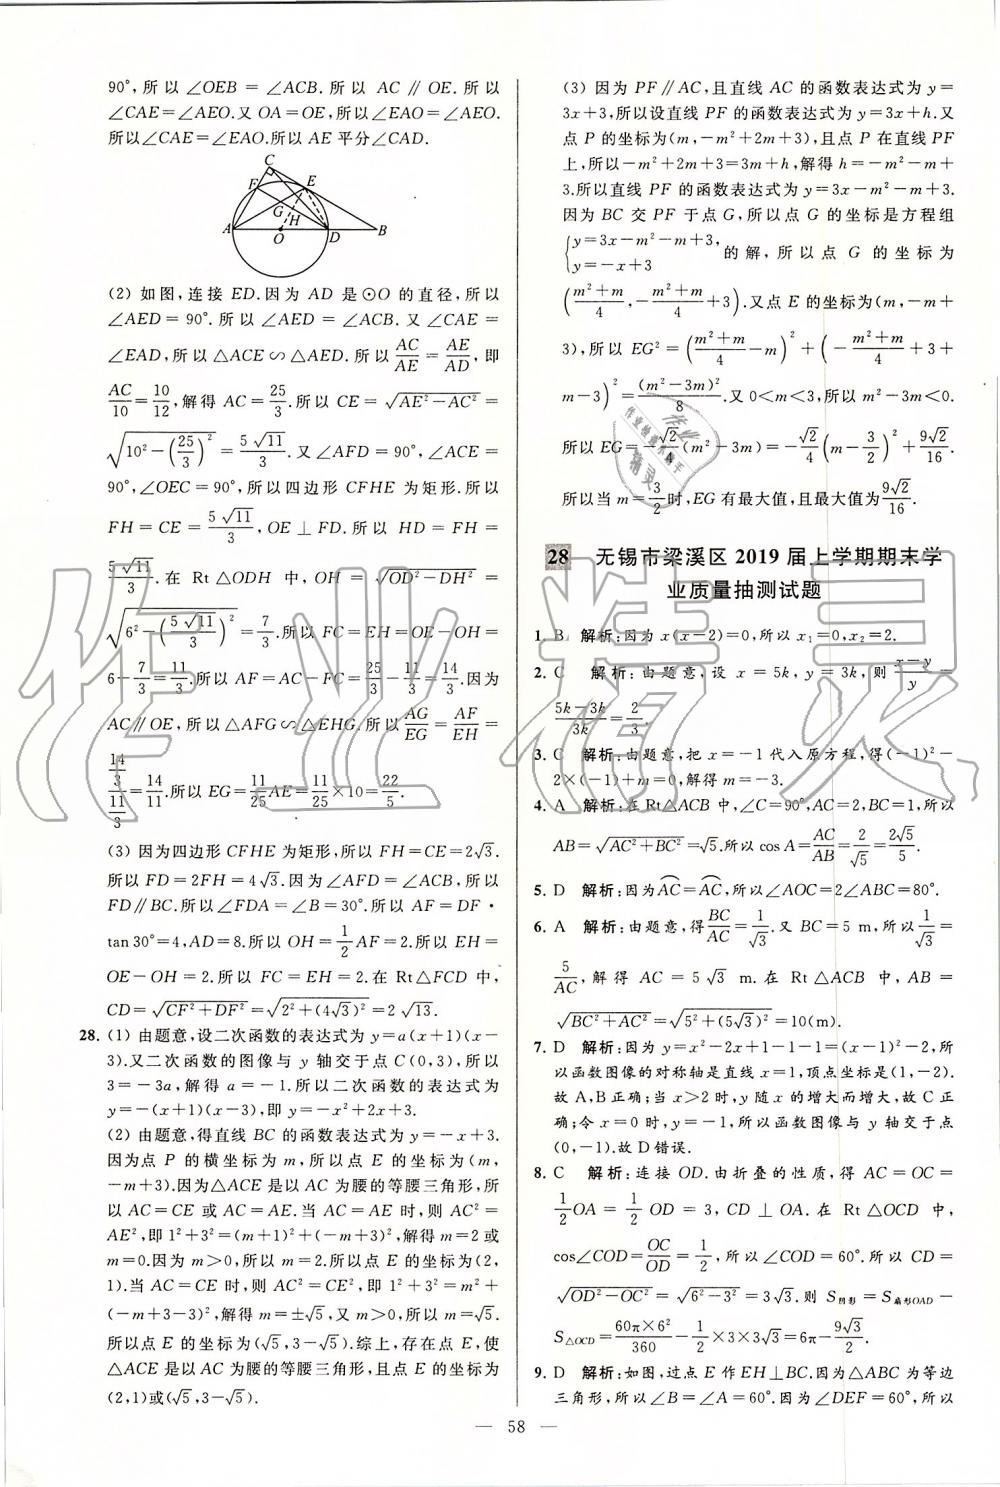 90°,所以∠OEB=∠ACB.所以 AC∥OE.所以
∠CAE=∠AEO.又OA=OE,所以∠EAO=∠AEO.
所以∠CAE=∠EAO.所以AE平分∠CAD.
C
F E
G
H
A O D B
(2) 如图,连接ED.因为 AD 是⊙O的直径,所以
∠AED=90°.所以∠AED=∠ACB.又∠CAE=
∠EAD,所以△ACE∽△AED.所以AC/AE=AE/AD,即
AC/10=10/12,解得AC=25/3.所以CE=√(AE²-AC²)=
√(10²-(25/3)²)=5√11/3.又∠AFD=90°,∠ACE=
90°,∠OEC=90°,所以四边形CFHE为矩形.所以
FH=CE=5√11/3,OE⊥FD.所以 HD=FH=
5√11/3.在 Rt△ODH 中,OH=√(OD²-DH²)=
√(6²-(5√11/3)²)=7/3.所以FC=EH=OE-OH=
6-7/3=11/3.所以AF=AC-FC=25/3-11/3=14/3.因为
AC∥OE,所以△AFG∽△EHG.所以AG/EG=AF/EH=
(14/3)/(11/3)=14/11.所以EG=11/25AE=11/25×10=22/5.
(3) 因为四边形CFHE为矩形,所以FH=CE=2√3.
所以FD=2FH=4√3.因为∠AFD=∠ACB,所以
FD∥BC.所以∠FDA=∠B=30°.所以AF=DF·
tan30°=4,AD=8.所以OH=1/2AF=2.所以EH=
OE-OH=2.所以FC=EH=2.在Rt△FCD中,
CD=√(CF²+DF²)=√(2²+(4√3)²)=2√13.
28. (1) 由题意,设二次函数的表达式为y=a(x+1)(x-
3).又二次函数的图像与y轴交于点C(0,3),所以
3=-3a,解得a=-1.所以二次函数的表达式为
y=-(x+1)(x-3),即y=-x²+2x+3.
(2) 由题意,得直线BC的函数表达式为y=-x+3.
因为点P的横坐标为m,所以点E的坐标为(m,
-m+3).因为△ACE是以AC为腰的等腰三角形,所
以AC=CE或AC=AE.当AC=AE时,则AC²=
AE²,即1²+3²=(m+1)²+(-m+3)²,解得m=2或
m=0.因为m>0,所以m=2.所以点E的坐标为(2,
1).当AC=CE时,则AC²=CE²,即1²+3²=m²+
(-m+3-3)²,解得m=±√5,又m>0,所以m=√5.
所以点E的坐标为(√5,3-√5).综上,存在点E,使
△ACE是以AC为腰的等腰三角形,且点E的坐标为
(2,1)或(√5,3-√5).
(3) 因为PF∥AC,且直线AC的函数表达式为y=
3x+3,所以设直线PF的函数表达式为y=3x+h.又
点P的坐标为(m,-m²+2m+3),且点P在直线PF
上,所以-m²+2m+3=3m+h,解得h=-m²-m+
3.所以直线PF的函数表达式为y=3x-m²-m+3.
因为BC交PF于点G,所以点G的坐标是方程组
{y=3x-m²-m+3,
y=-x+3
的解,所以点G的坐标为
((m²+m)/4,-(m²+m)/4+3).又点E的坐标为(m,-m+
3),所以EG²=((m²+m)/4-m)²+(-(m²+m)/4+3+
m-3)²=(m²-3m)²/8.又0<m<3,所以m²-3m<0.
所以EG=-√2/4(m²-3m)=-√2/4(m-3/2)²+9√2/16.
所以当m=3/2时,EG有最大值,且最大值为9√2/16.
28 无锡市梁溪区2019届上学期期末学
业质量抽测试题
1. B 解析:因为x(x-2)=0,所以x₁=0,x₂=2.
2. C 解析:由题意,设x=5k,y=3k,则(x-y)/y=
(5k-3k)/3k=2/3.
3. C 解析:由题意,把x=-1代入原方程,得(-1)²-
2×(-1)+m=0,解得m=-3.
4. A 解析:在Rt△ACB中,∠C=90°,AC=2,BC=1,所以
AB=√(AC²+BC²)=√5.所以cosA=AC/AB=2/√5=2√5/5.
5. D 解析:因为AC⌒=AC⌒,所以∠AOC=2∠ABC=80°.
6. A 解析:由题意,得BC/AC=1/√3.又BC=5 m,所以1/√3=
5/AC,解得AC=5√3 m.在Rt△ACB中,AB=
√(BC²+AC²)=√(5²+(5√3)²)=10(m).
7. D 解析:因为y=x²-2x+1-1-1=(x-1)²-2,所
以函数图像的对称轴是直线x=1,顶点坐标是(1,-2).
故A,B正确;当x>2时,y随x的增大而增大,故C正
确;令x=0时,y=-1,所以函数图像与y轴交于点
(0,-1).故D错误.
8. C 解析:连接OD.由折叠的性质,得AC=OC=
1/2OA=1/2OD=3,CD⊥OA.在Rt△OCD中,
cos∠COD=OC/OD=1/2,所以∠COD=60°.所以CD=
√(OD²-OC²)=√(6²-3²)=3√3.则S阴影=S扇形OAD-
S△OCD=60π×6²/360-1/2×3×3√3=6π-9√3/2.
9. D 解析:如图,过点E作EH⊥BC.因为△ABC为等边
三角形,所以∠B=∠A=60°.因为∠DEF=60°,所以
— 58 —
作业精灵